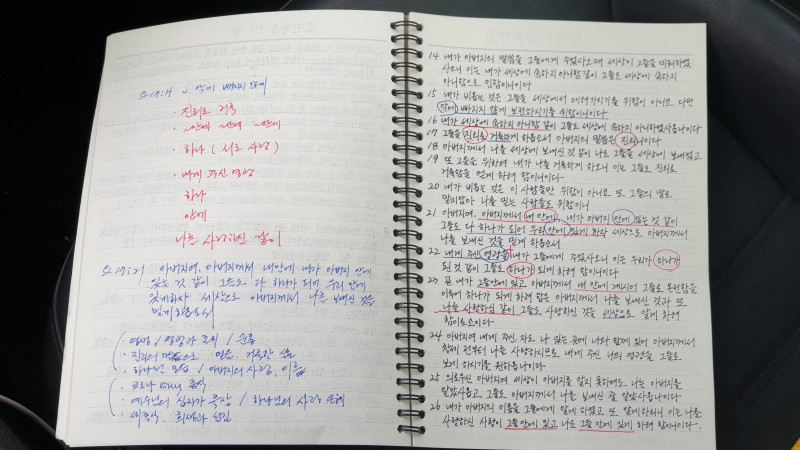 요 17:14 ~ 악에 빠지지 않게
· 진리로 거룩
· ~안에 ~안에 ~안에
· 하나 (서로 사랑)
· 내게 주신 영광
하나
안에
나를 사랑하심 같이
요 17:21 아버지여, 아버지께서 내 안에 내가 아버지 안에
있는 것 같이 그들도 다 하나가 되어 우리 안에
있게하사 세상으로 아버지께서 나를 보내신 것을
믿게 하옵소서
/ 순종
· 진리의 말씀으로 거룩한 삶
· 하나된 모습 / 아버지의 사랑, 이름
· 코로나
· 예수님의 십자가 묵상 / 하나님의 사랑
· 희생과 섬김
14 내가 아버지의 말씀을 그들에게 주었사오매 세상이 그들을 미워하였
사오니 이는 내가 세상에 속하지 아니함 같이 그들도 세상에 속하지
아니함으로 인함이니이다
15 내가 비옵는 것은 그들을 세상에서 데려가시기를 위함이 아니요 다만
악에 빠지지 않게 보전하시기를 위함이니이다
16 내가 세상에 속하지 아니함 같이 그들도 세상에 속하지 아니하였사옵나이다
17 그들을 진리로 거룩하게 하옵소서 아버지의 말씀은 진리니이다
18 아버지께서 나를 세상에 보내신 것 같이 나도 그들을 세상에 보내었고
19 또 그들을 위하여 내가 나를 거룩하게 하오니 이는 그들도 진리로
거룩함을 얻게 하려 함이니이다
20 내가 비옵는 것은 이 사람들만 위함이 아니요 또 그들의 말로
말미암아 나를 믿는 사람들도 위함이니
21 아버지여, 아버지께서 내 안에, 내가 아버지 안에 있는 것 같이
그들도 다 하나가 되어 우리 안에 있게 하사 세상으로 아버지께서
나를 보내신 것을 믿게 하옵소서
22 내게 주신 영광을 내가 그들에게 주었사오니 이는 우리가 하나가
된 것 같이 그들도 하나가 되게 하려 함이니이다
23 곧 내가 그들 안에 있고 아버지께서 내 안에 계시어 그들로 온전함을
이루어 하나가 되게 하려 함은 아버지께서 나를 보내신 것과 또
나를 사랑하심 같이 그들도 사랑하신 것을 세상으로 알게 하려
함이로소이다
24 아버지여 내게 주신 자도 나 있는 곳에 나와 함께 있어 아버지께서
창세 전부터 나를 사랑하시므로 내게 주신 나의 영광을 그들로
보게 하시기를 원하옵나이다
25 의로우신 아버지여 세상이 아버지를 알지 못하여도 나는 아버지를
알았사옵고 그들도 아버지께서 나를 보내신 줄 알았사옵나이다
26 내가 아버지의 이름을 그들에게 알게 하였고 또 알게 하리니 이는 나를
사랑하신 사랑이 그들 안에 있고 나도 그들 안에 있게 하려 함이니이다.